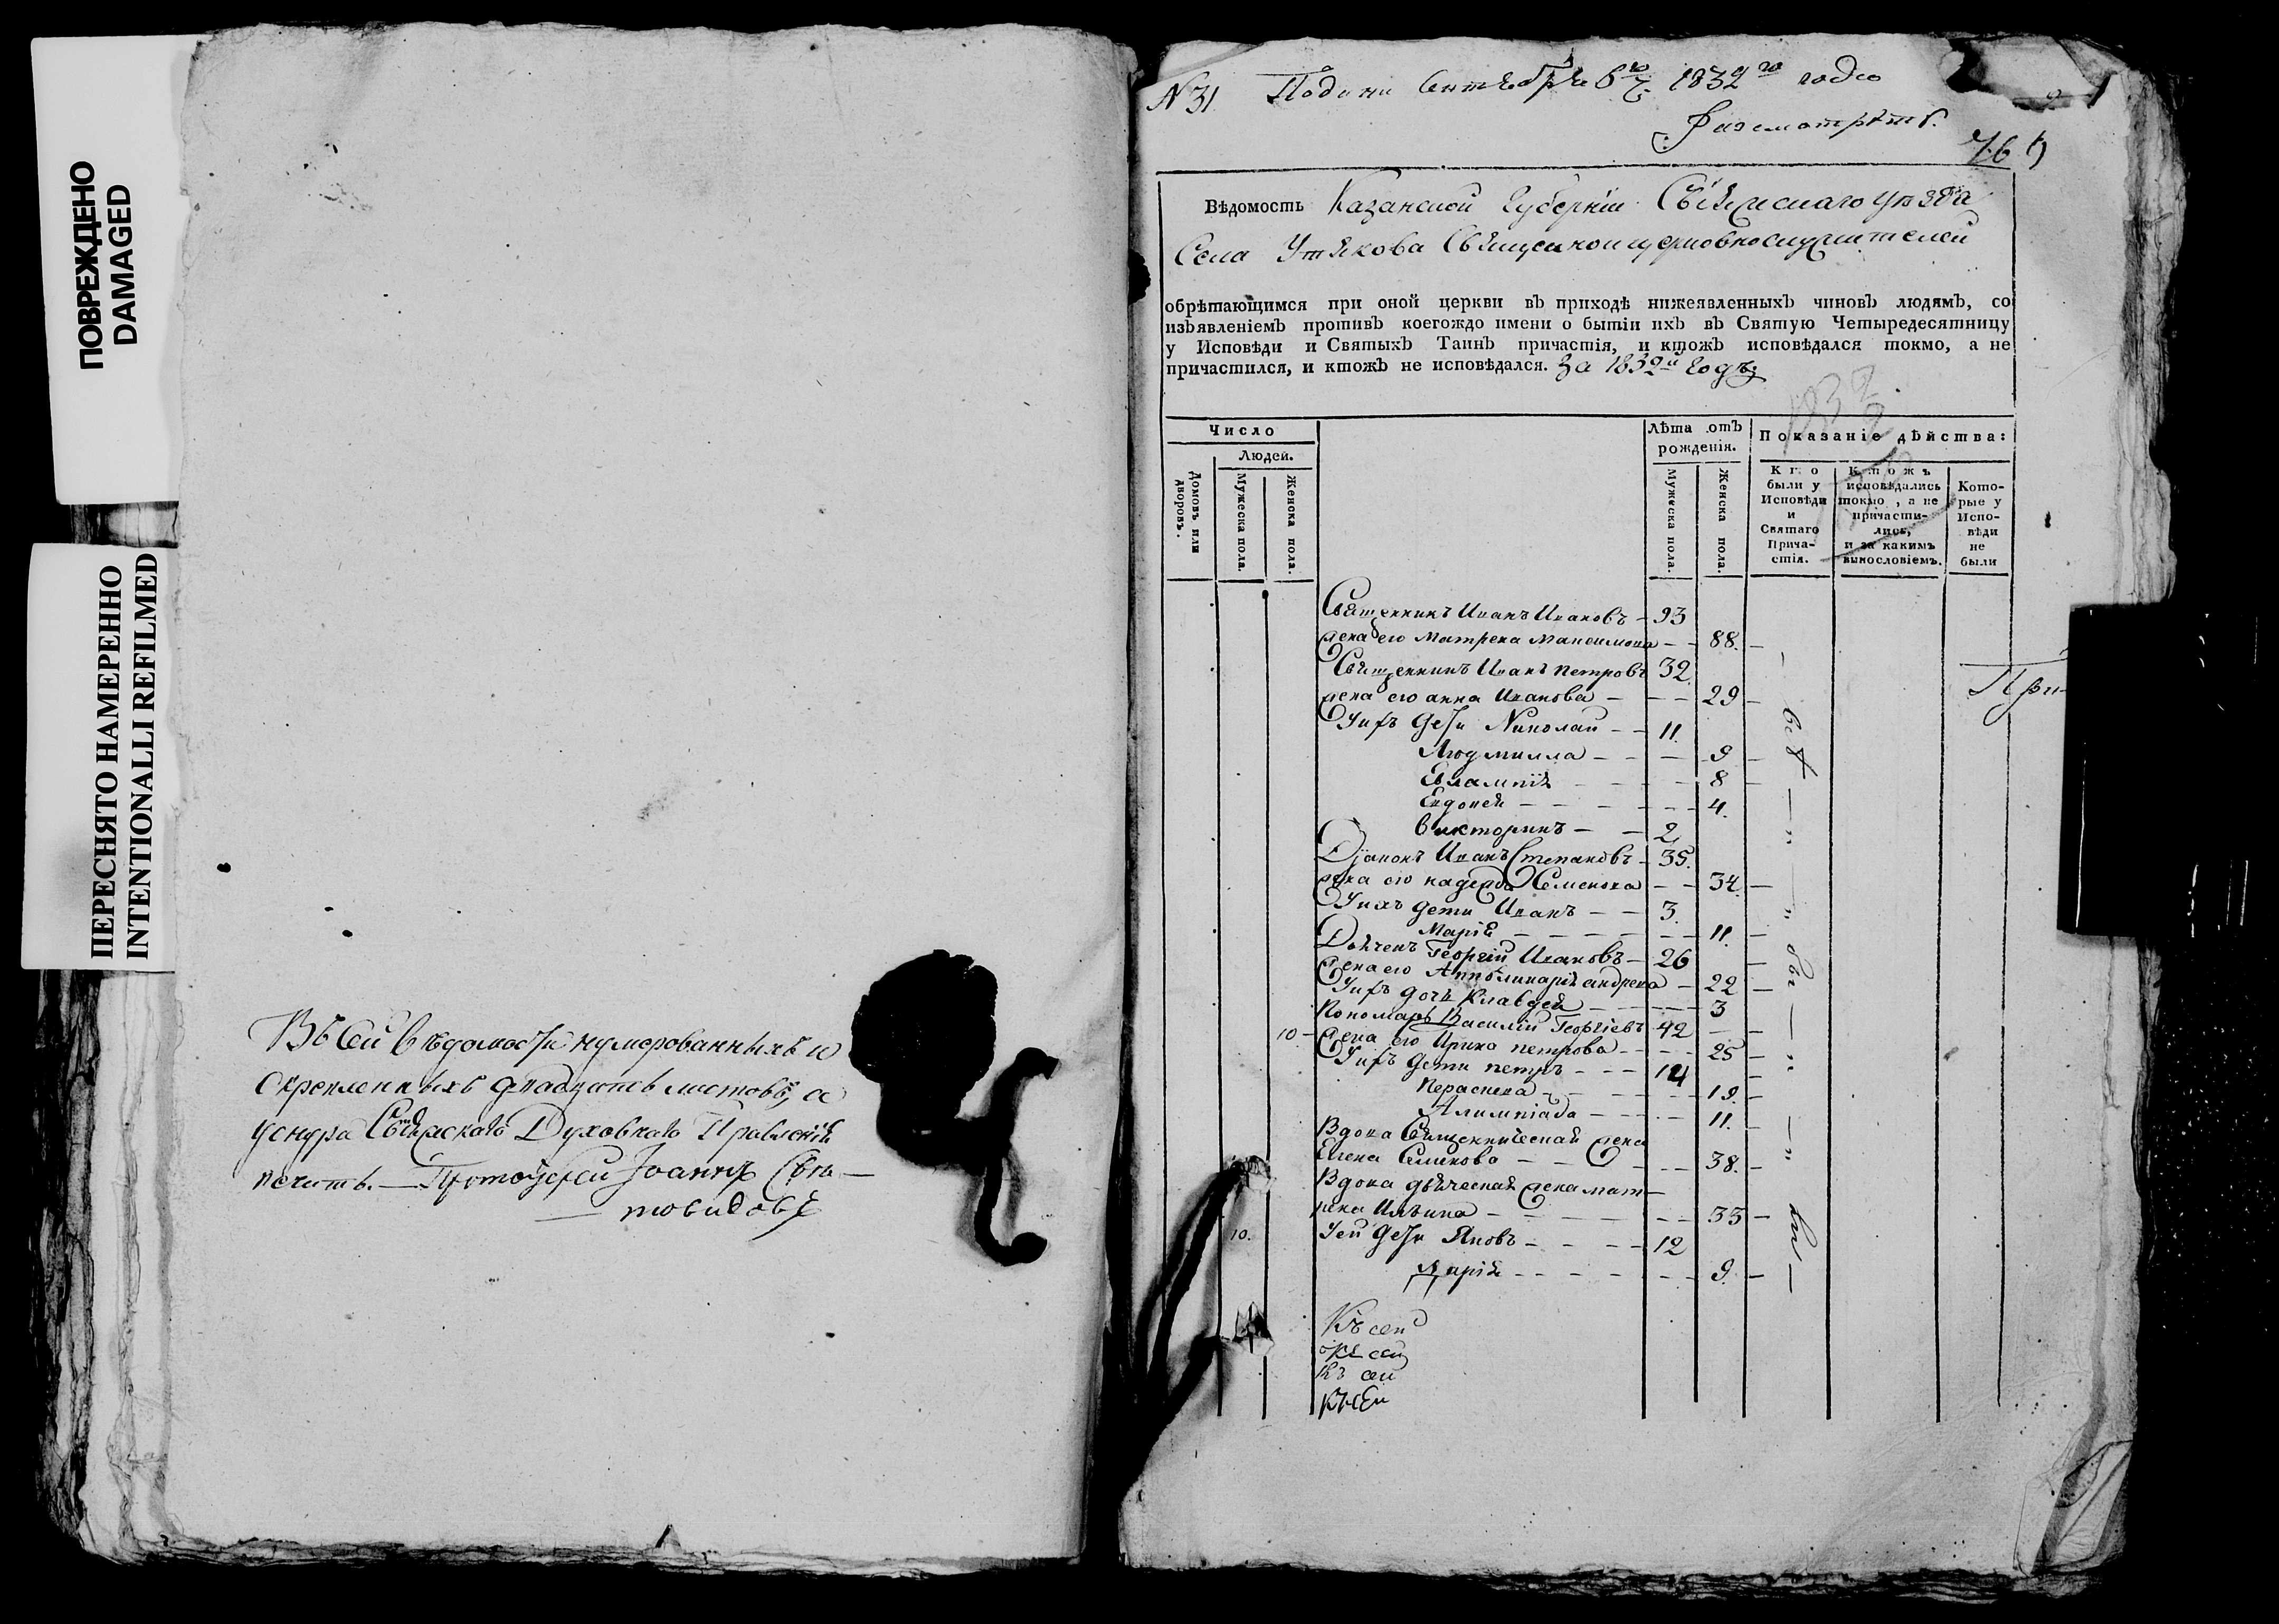 ПОВРЕЖДЕНО
DAMAGED
ПЕРЕСНЯТО НАМЕРЕННО
INTENTIONALLI REFILMED
Въ сей вѣдомости нумерованныхъ и
скрепленныхъ двадцать листовъ, а
уснура Свіяжскаго Духовнаго Правленія
печать. — Протоіерей Іоаннъ Свѣ-
товидовъ
№ 31. Подана Сентября 1832го года
Разсмотрѣть.
Вѣдомость Казанской Губерніи Свіяжскаго уѣзда
Села Утякова Священноицерковнослужителей
обрѣтающимся при оной церкви въ приходѣ нижеявленныхъ чиновъ людямъ, со
изъявленіемъ противъ коегождо имени о бытіи ихъ въ Святую Четыредесятницу
у Исповѣди и Святыхъ Таинъ причастія, и ктожъ исповѣдался токмо, а не
причастился, и ктожъ не исповѣдался. За 1832й Годъ.
1832
Число
Людей.
Домовъ или дворовъ.
Мужеска пола.
Женска пола.
Лѣта отъ рожденія.
Мужеска пола.
Женска пола.
Показаніе дѣйства:
Кто были у Исповѣди и Святаго Причастія.
Ктожъ исповѣдались токмо, а не причастились, и за какимъ винословіемъ.
Которые у Исповѣди не были
Священникъ Иванъ Ивановъ — 93
жена его Матрена Максимова — 88.
Священникъ Иванъ Петровъ 32
жена его Анна Иванова — 29
При-
У ихъ дети Николай — 11.
Людмилла — 9
Евлампія — 8
Евдокея — 4.
Викторинъ — 2
Діаконъ Иванъ Степановъ — 35.
жена его Надежда Семенова — 34.
У ихъ дети Иванъ — 3.
Марія — 11.
Дьячекъ Георгій Ивановъ — 26
жена его Апполинарія Андрева — 22
У ихъ дочь Клавдея — 3
Пономарь Василий Георгіевъ 42
10 — жена его Ирина Петрова — 25
У ихъ дети Петръ — 14
Параскева — 19.
Алимпіада — 11.
Вдова Священническая жена
Елена Семенова — 38.
Вдова дьяческая жена Мат-
рена Ильина — 33
10. У ей дети Яковъ — 12
Марія — 9.
всѣ — „ — „ — были — „ — „
Къ сей
Къ сей
Къ сей
Къ сей